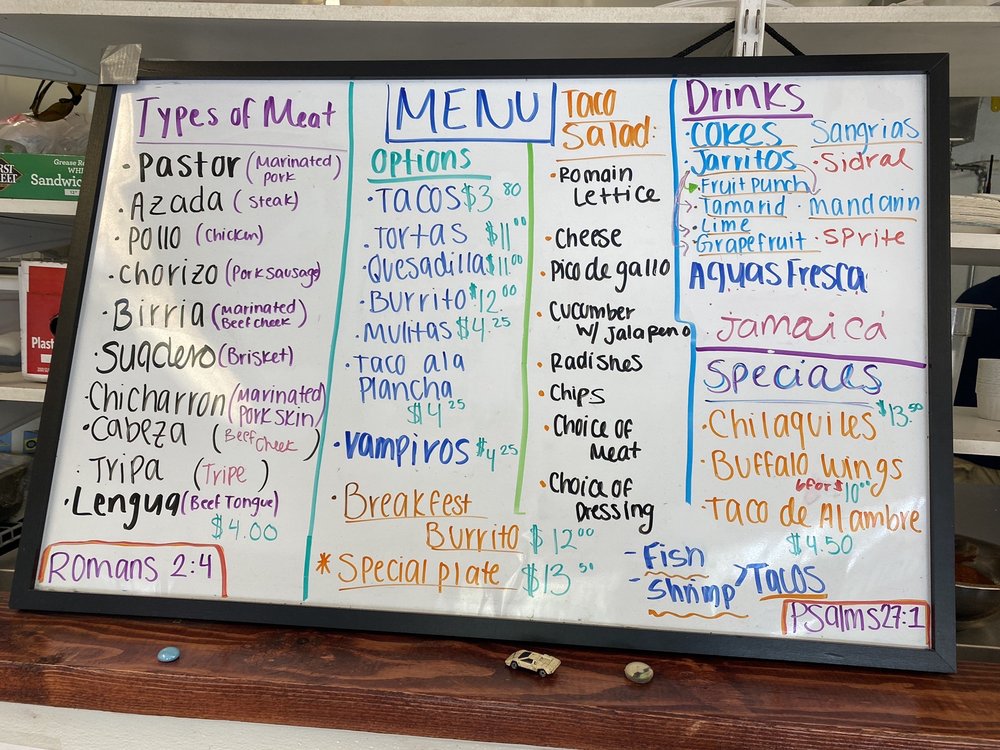 Types of Meat
• Pastor (Marinated pork)
• Azada (steak)
• Pollo (Chicken)
• Chorizo (Pork sausage)
• Birria (Marinated Beef cheek)
• Suadero (Brisket)
• Chicharron (Marinated Pork skin)
• Cabeza (Beef Cheek)
• Tripa (Tripe)
• Lengua (Beef Tongue)
$4.00
Romans 2:4
MENU
Options
• Tacos $3.80
• Tortas $11.00
• Quesadilla $11.00
• Burrito $12.00
• Mulitas $4.25
• Taco ala
Plancha
$4.25
• Vampiros $4.25
• Breakfest
Burrito $12.00
* Special plate $13.50
Taco
Salad:
• Romain
Lettice
• Cheese
• Pico de gallo
• Cucumber
w/ Jalapeno
• Radishes
• Chips
• Choice of
Meat
• Choice of
Dressing
- Fish
- Shrimp > Tacos
Drinks
• Cokes Sangrias
• Jarritos • Sidral
• Fruit Punch
• Tamarid • Mandarin
• Lime
• Grapefruit • Sprite
Aquas Fresca
Jamaica
Specials
• Chilaquiles $13.50
• Buffalo Wings
6 for $10.00
• Taco de Alambre
$4.50
Psalms 27:1
Grease Re
WH
Sandwic
Plast